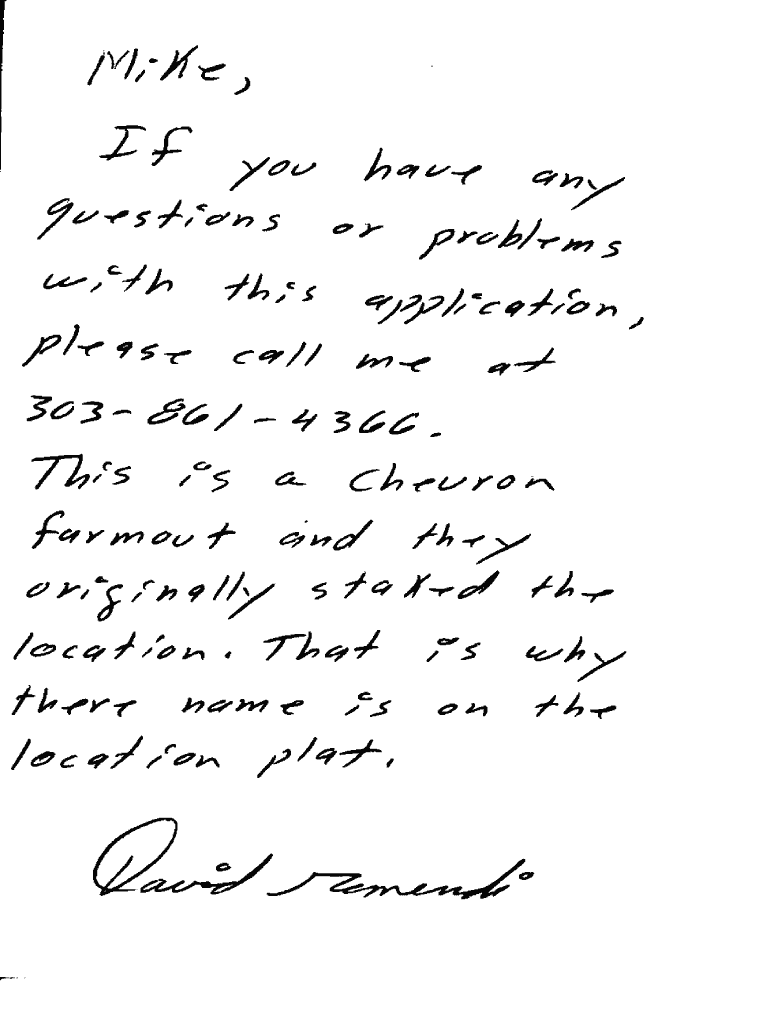 Mike,
If you have any
questions or problems
with this application,
please call me at
303-861-4366.
This is a Chevron
farmout and they
originally staked the
location. That is why
there name is on the
location plat.
David